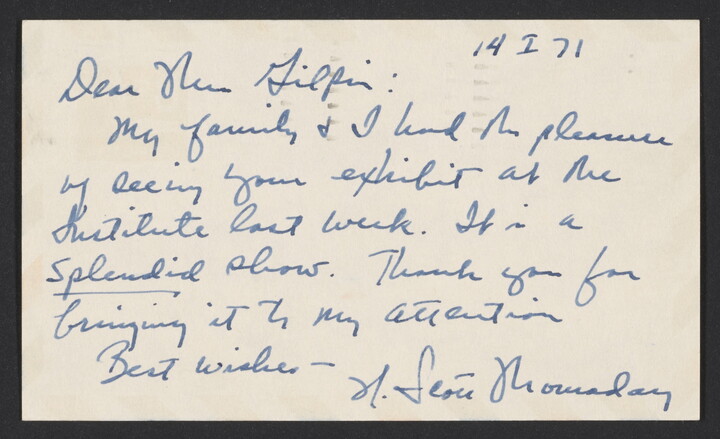 14 I 71
Dear Mrs Gilpin:
My family & I had the pleasure
of seeing your exhibit at the
Institute last week. It is a
splendid show. Thank you for
bringing it to my attention
Best wishes—
N. Scott Momaday